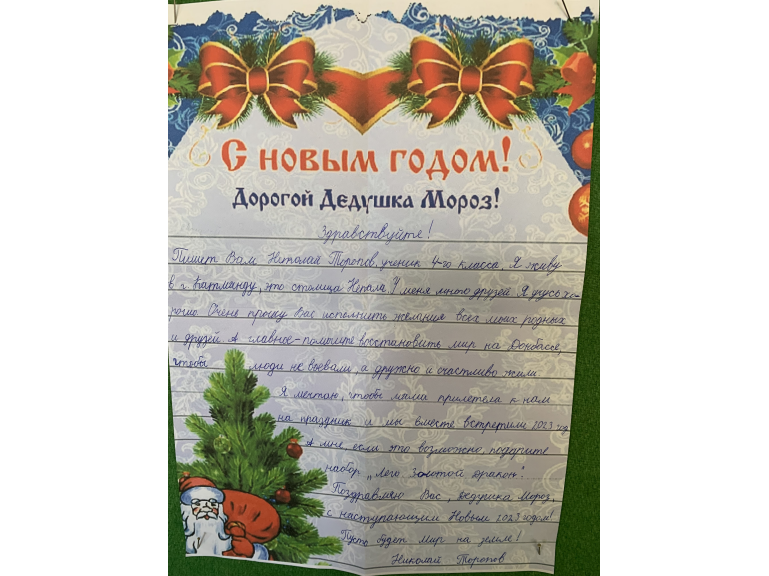 С новым годом!
Дорогой Дедушка Мороз!
Здравствуйте!
Пишет Вам Николай Торопов, ученик 4-го класса. Я живу
в г. Катманду, это столица Непала. У меня много друзей. Я учусь хо-
рошо. Очень прошу Вас исполнить желания всех моих родных
и друзей. А главное - помогите восстановить мир на Донбассе,
чтобы люди не воевали, а дружно и счастливо жили.
Я мечтаю, чтобы мама прилетела к нам
на праздник и мы вместе встретили 2023 год.
А мне если это возможно, подарите
набор „Лего Золотой дракон".
Поздравляю Вас, Дедушка Мороз,
с наступающим Новым 2023 годом!
Пусть будет мир на земле!
Николай Торопов